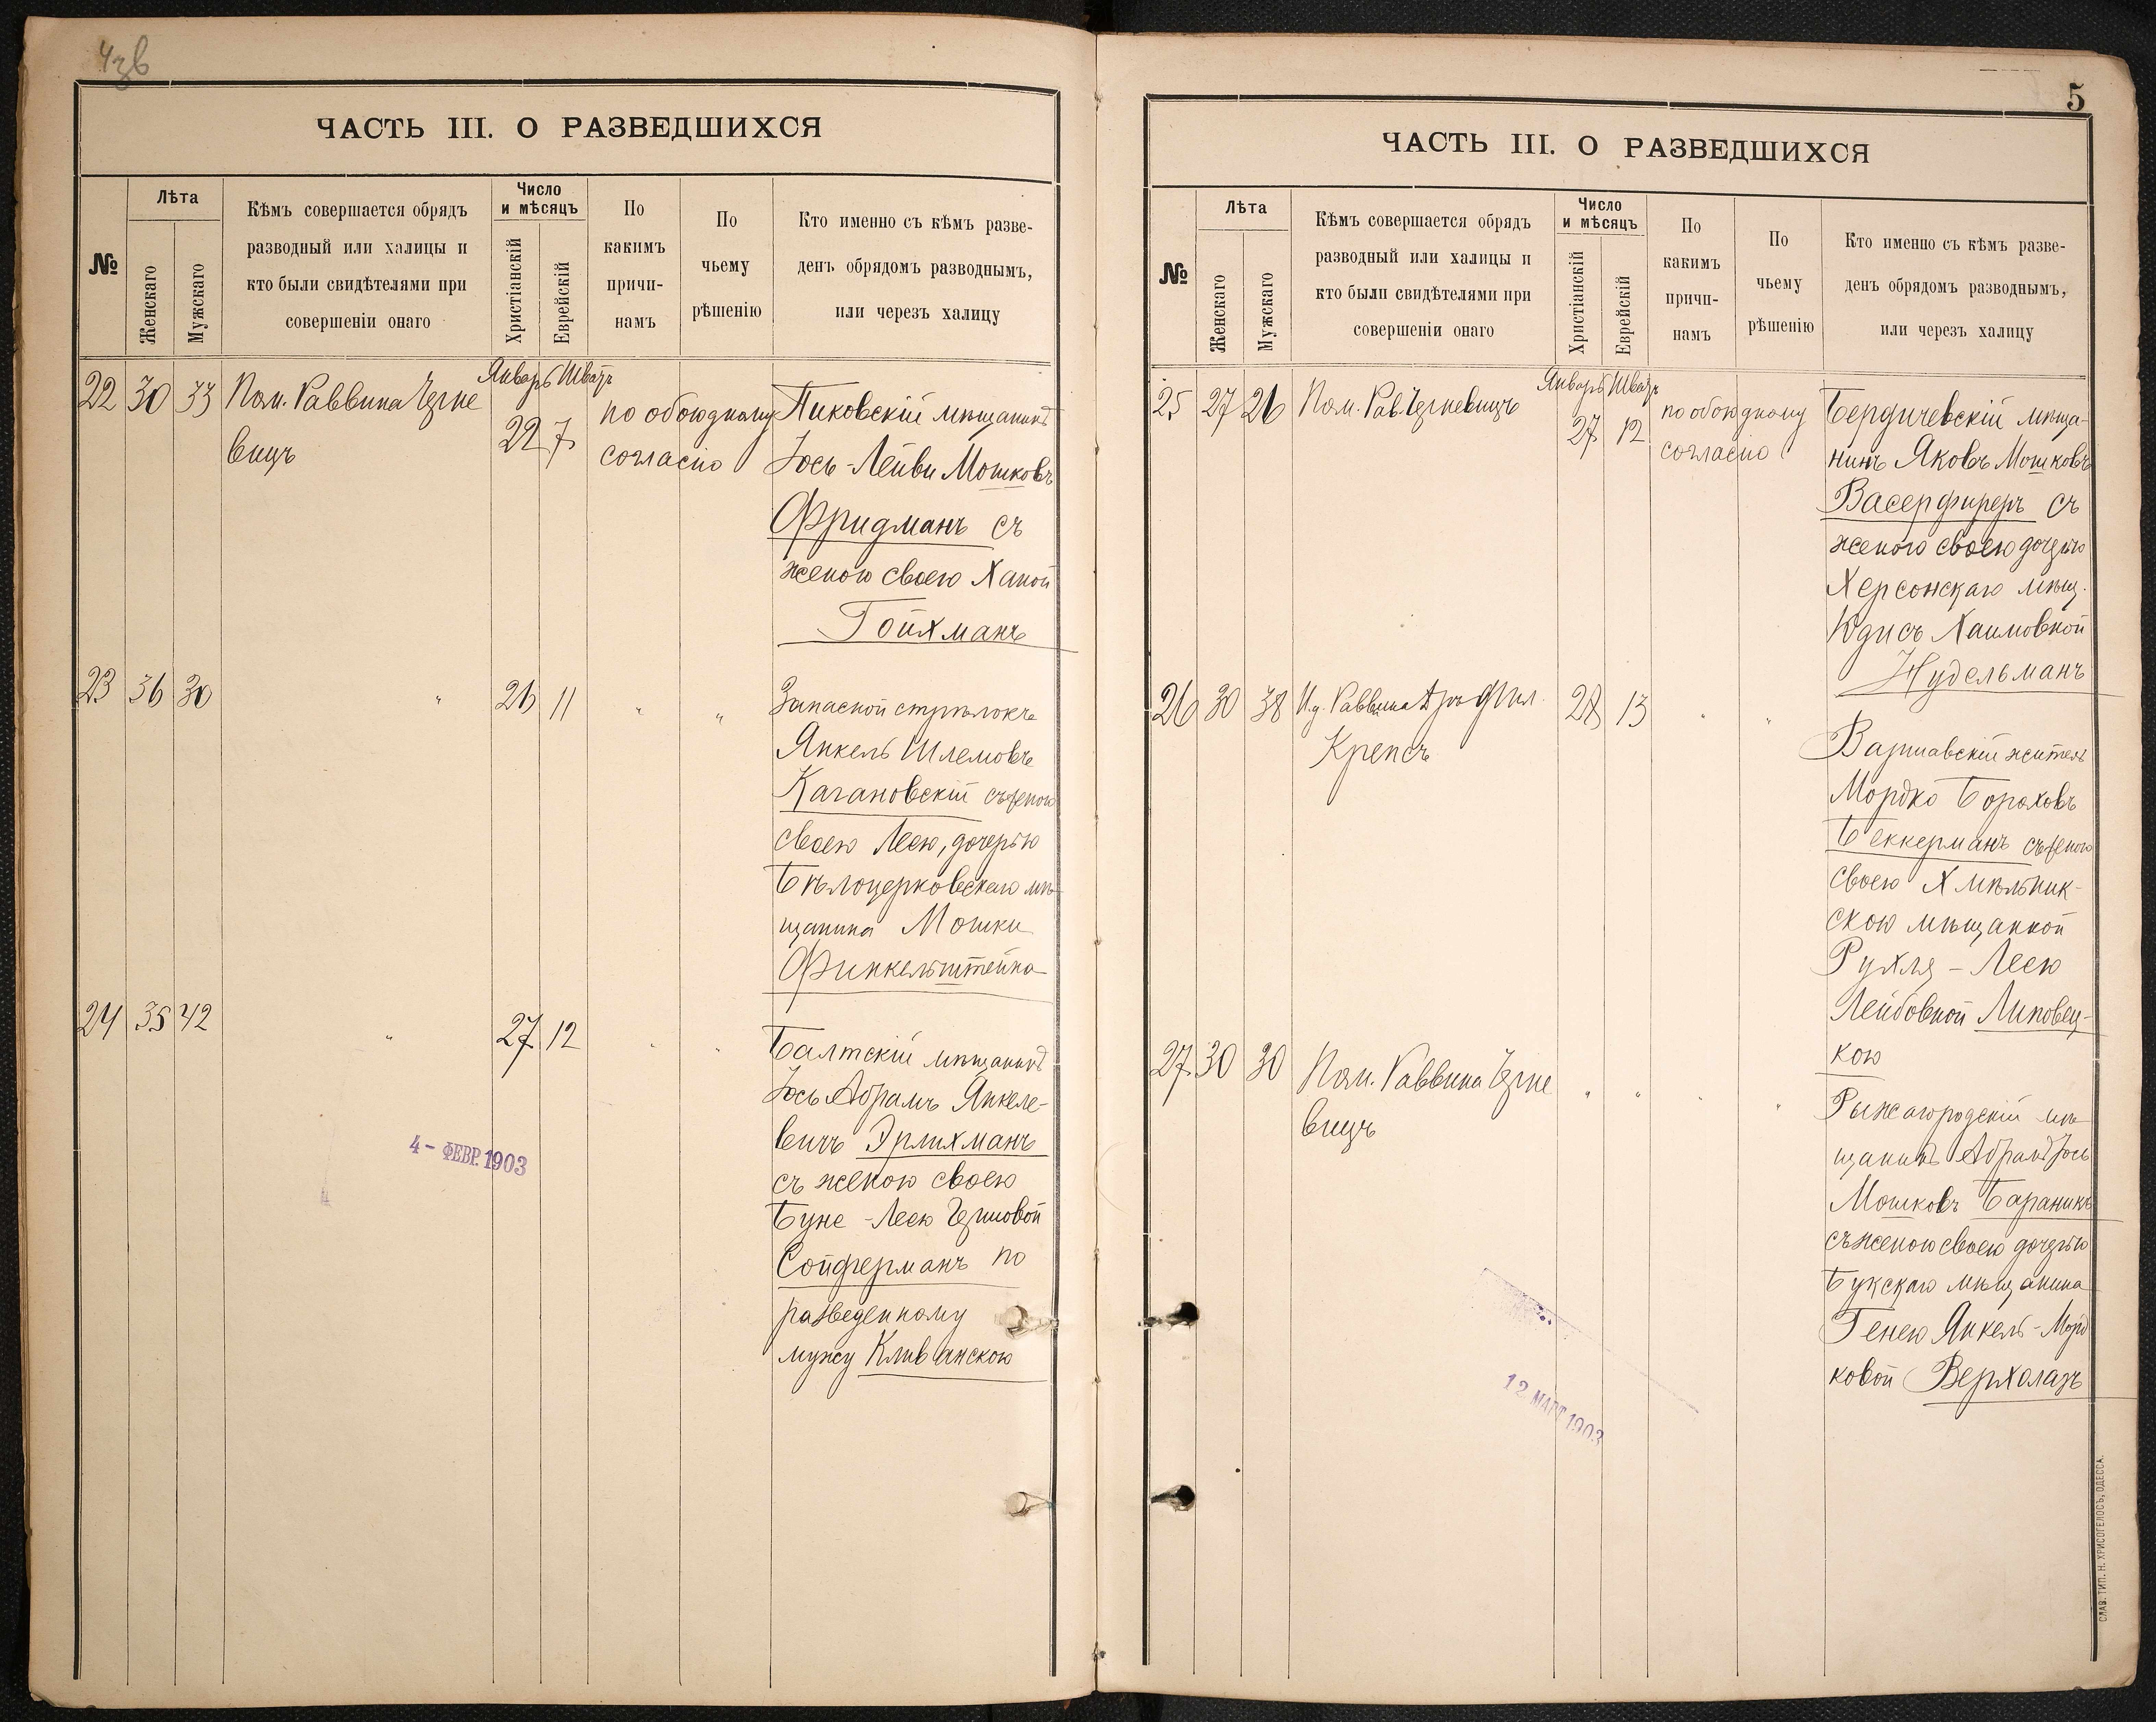 4зв
ЧАСТЬ III. О РАЗВЕДШИХСЯ
№
Лѣта
Женскаго
Мужскаго
Кѣмъ совершается обрядъ
разводный или халицы и
кто были свидѣтелями при
совершеніи онаго
Число
и мѣсяцъ
Христіанскій
Еврейскій
По
какимъ
причи-
намъ
По
чьему
рѣшенію
Кто именно съ кѣмъ разве-
денъ обрядомъ разводнымъ,
или черезъ халицу
22 30 33
Пом. Раввина Черне
вицъ
Январь Шватъ
22 7
по обоюдному
согласію
Пиковскій мѣщанинъ
Іось-Лейви Мошковъ
Фридманъ съ
женою своею Ханой
Гойхманъ
23 36 30
"
26 11
" "
Запасной стрѣлокъ
Янкель Шлемовъ
Кагановскій съ женою
своею Леею, дочерью
Бѣлоцерковскаго мѣ-
щанина Мошки
Финкельштейна
24 35 42
"
27 12
" "
Балтскій мѣщанинъ
Іось Абрамъ Янкеле-
вичъ Эрлихманъ
съ женою своею
Буне-Леею Гершовой
Сойферманъ по
разведенному
мужу Кливанскою
4- ФЕВР. 1903
5
ЧАСТЬ III. О РАЗВЕДШИХСЯ
№
Лѣта
Женскаго
Мужскаго
Кѣмъ совершается обрядъ
разводный или халицы и
кто были свидѣтелями при
совершеніи онаго
Число
и мѣсяцъ
Христіанскій
Еврейскій
По
какимъ
причи-
намъ
По
чьему
рѣшенію
Кто именно съ кѣмъ разве-
денъ обрядомъ разводнымъ,
или черезъ халицу
25 27 26
Пом. Рав. Черневицъ
Январь Шватъ
27 12
по обоюдному
согласію
Бердичевскій мѣща-
нинъ Яковъ Мошковъ
Васерфиреръ съ
женою своею дочерью
Херсонскаго мѣщ.
Юдисъ Хаимовной
Нудельманъ
26 30 38
И.д. Раввина Фил.
Крепсъ
28 13
" "
Варшавскій житель
Мордко Бороховъ
Беккерманъ съ женою
своею Хмѣльник-
скою мѣщанкой
Рухля-Леею
Лейбовной Липовец-
кою
27 30 30
Пом. Раввина Черне
вицъ
" "
" "
Рыжагородскій мѣ-
щанинъ Абрамъ Іось
Мошковъ Бараникъ
съ женою своею дочерью
Букскаго мѣщанина
Генею Янкель-Морд
ковой Верхолазъ
12 МАРТ 1903
СЛАВ. ТИП. Н. ХРИСОГЕЛОСЪ, ОДЕССА.